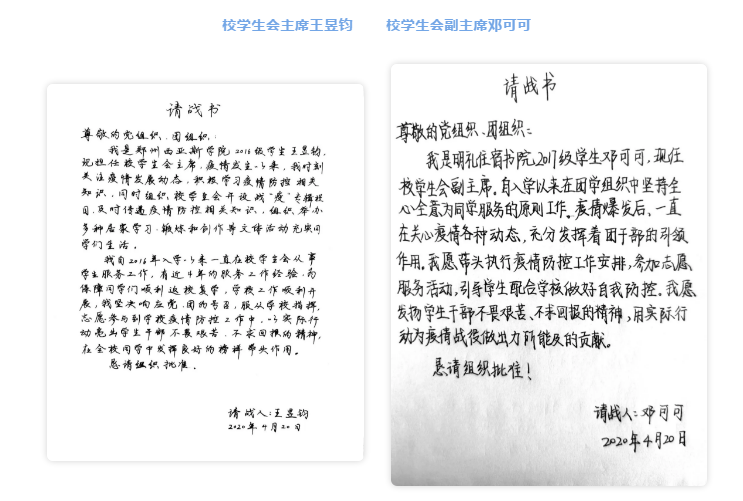 校学生会主席王昱钧
校学生会副主席邓可可
请战书
尊敬的党组织、团组织：
我是郑州西亚斯学院2016级学生王昱钧，
现担任校学生会主席，疫情发生以来，我时刻
关注疫情发展动态，积极学习疫情防控相关
知识，同时组织校学生会开设战“疫”专辑栏
目，及时传递疫情防控相关知识，组织举办
多种居家学习、锻炼和创作等文体活动充实同
学们生活。
我自2016年入学以来一直在校学生会从事
学生服务工作，有近4年的服务工作经验，为
保障同学们顺利返校复学，学校工作顺利开
展，我坚决响应党、团的号召，服从学校指挥，
志愿参与到学校疫情防控工作中，以实际行
动亮出学生干部不畏艰苦、不求回报的精神，
在全校同学中发挥良好的榜样带头作用。
恳请组织批准。
请战人：王昱钧
2020年4月20日
请战书
尊敬的党组织、团组织：
我是明礼住宿书院2017级学生邓可可，现任
校学生会副主席。自入学以来在团学组织中坚持全
心全意为同学服务的原则工作。疫情爆发后，一直
在关心疫情各种动态，充分发挥着团干部的引领
作用。我愿带头执行疫情防控工作安排，参加志愿
服务活动，引导学生配合学校做好自我防控。我愿
发扬学生干部不畏艰苦、不求回报的精神，用实际行
动为疫情战役做出力所能及的贡献。
恳请组织批准！
请战人：邓可可
2020年4月20日